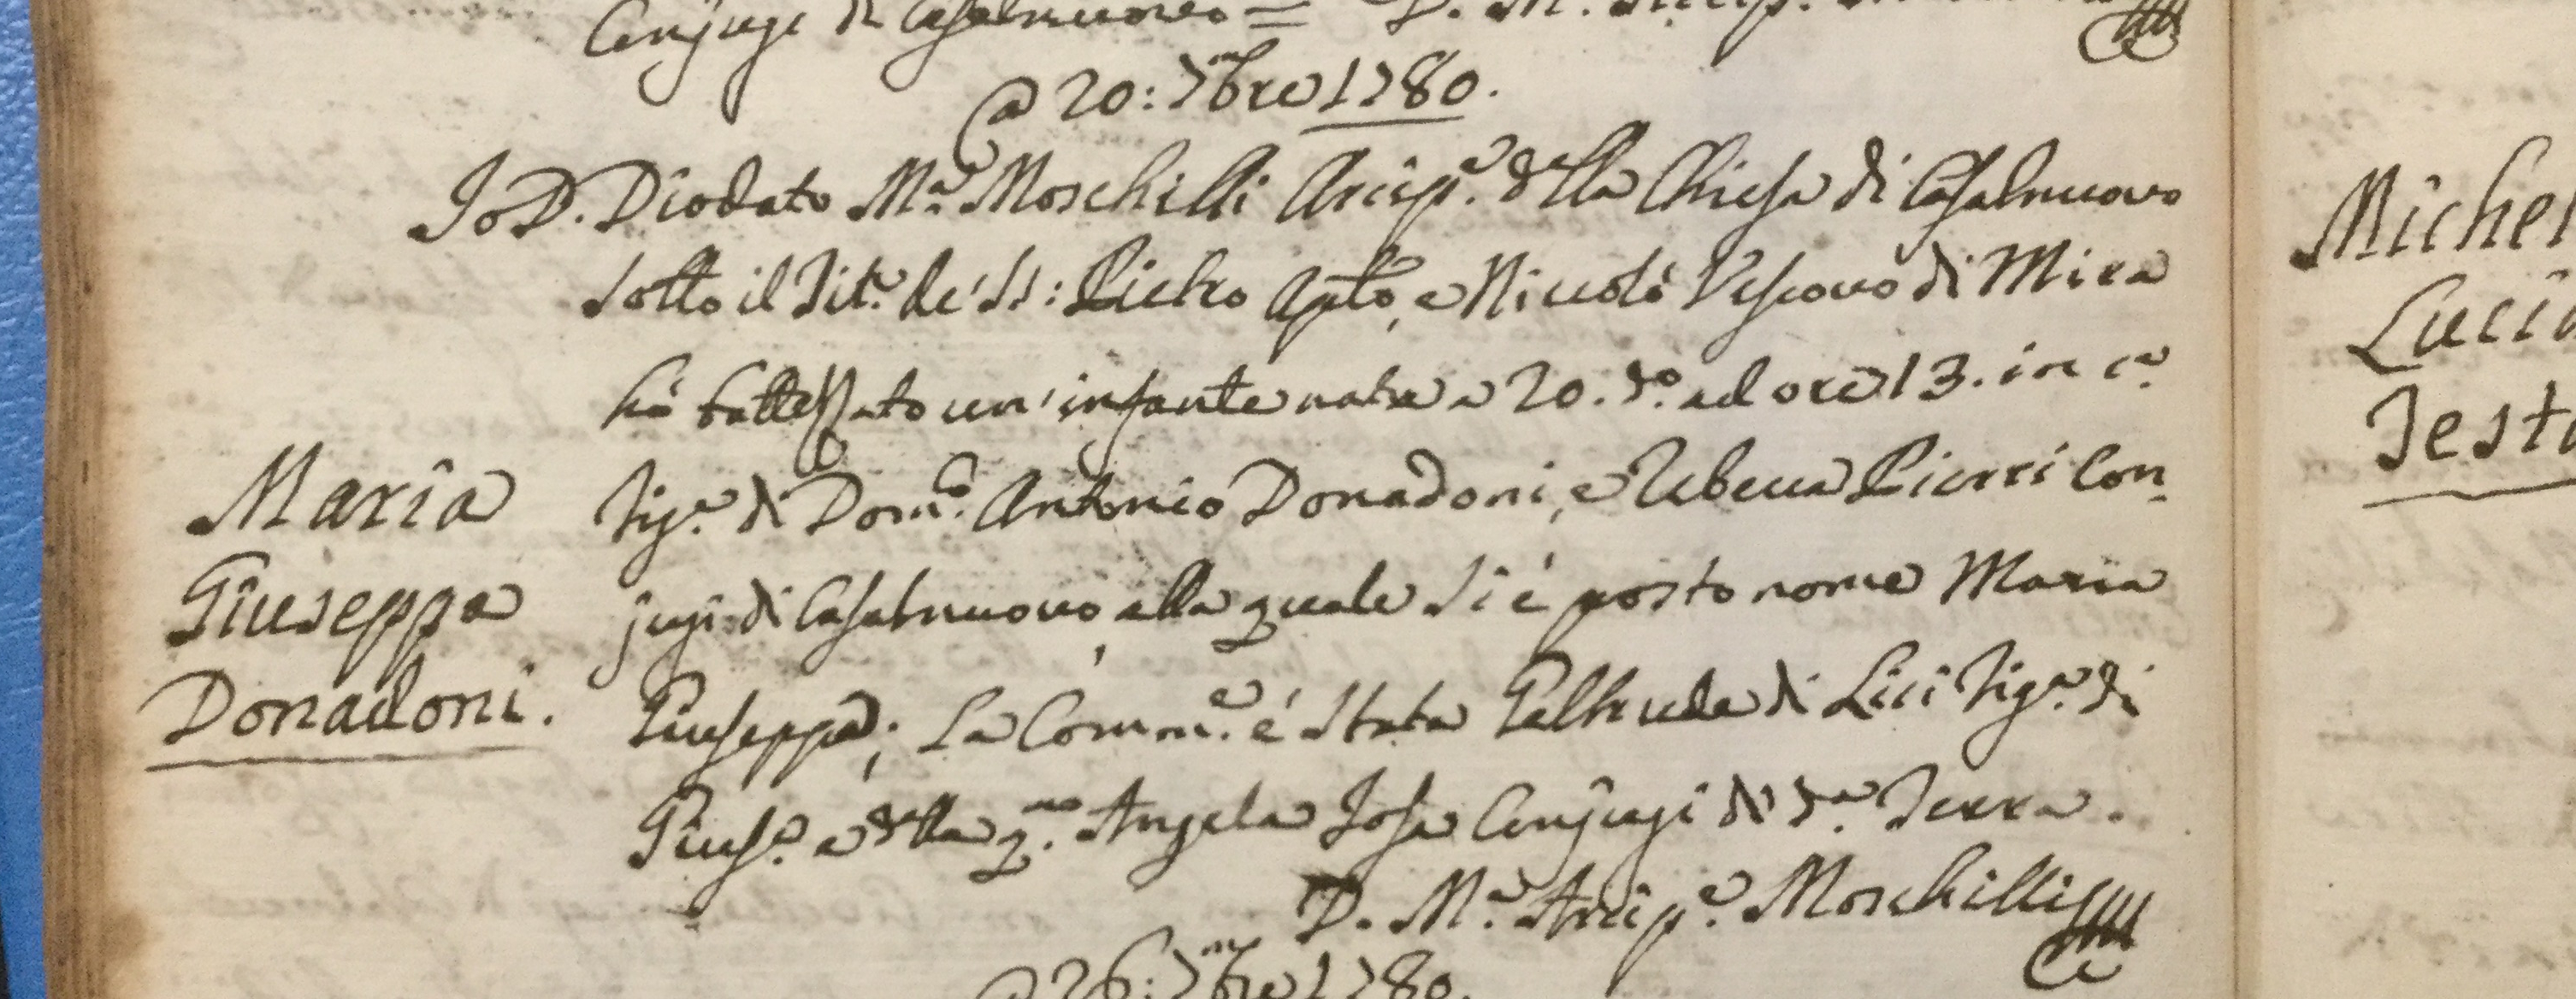 Conjugi di Casalnuovo = D. M. Arcip.
a 20: 7mbre 1780.
Io D. Diodato Ma. Moschilli Arcip.e della Chiesa di Casalnuovo
sotto il Tit.o de' SS: Pietro Aplo, e Niccolò Vescovo di Mira
hà battezzato un' infante nata a 20. do. ad ore 13. in ca.
Maria
Giuseppa
Donadoni.
fig.a di Dom.co Antonio Donadoni, e Rebecca Pierri Con-
jugi di Casalnuovo, alla quale si é posto nome Maria
Giuseppa; La Comm.e é stata Geltruda di Lici fig.a di
Gius.e e della q.m Angela Iosa Conjugi di d.a Terra.
D. M.a Arcip.e Moschilli
a 26: 7mbre 1780.
Michel
Lucia
Testa